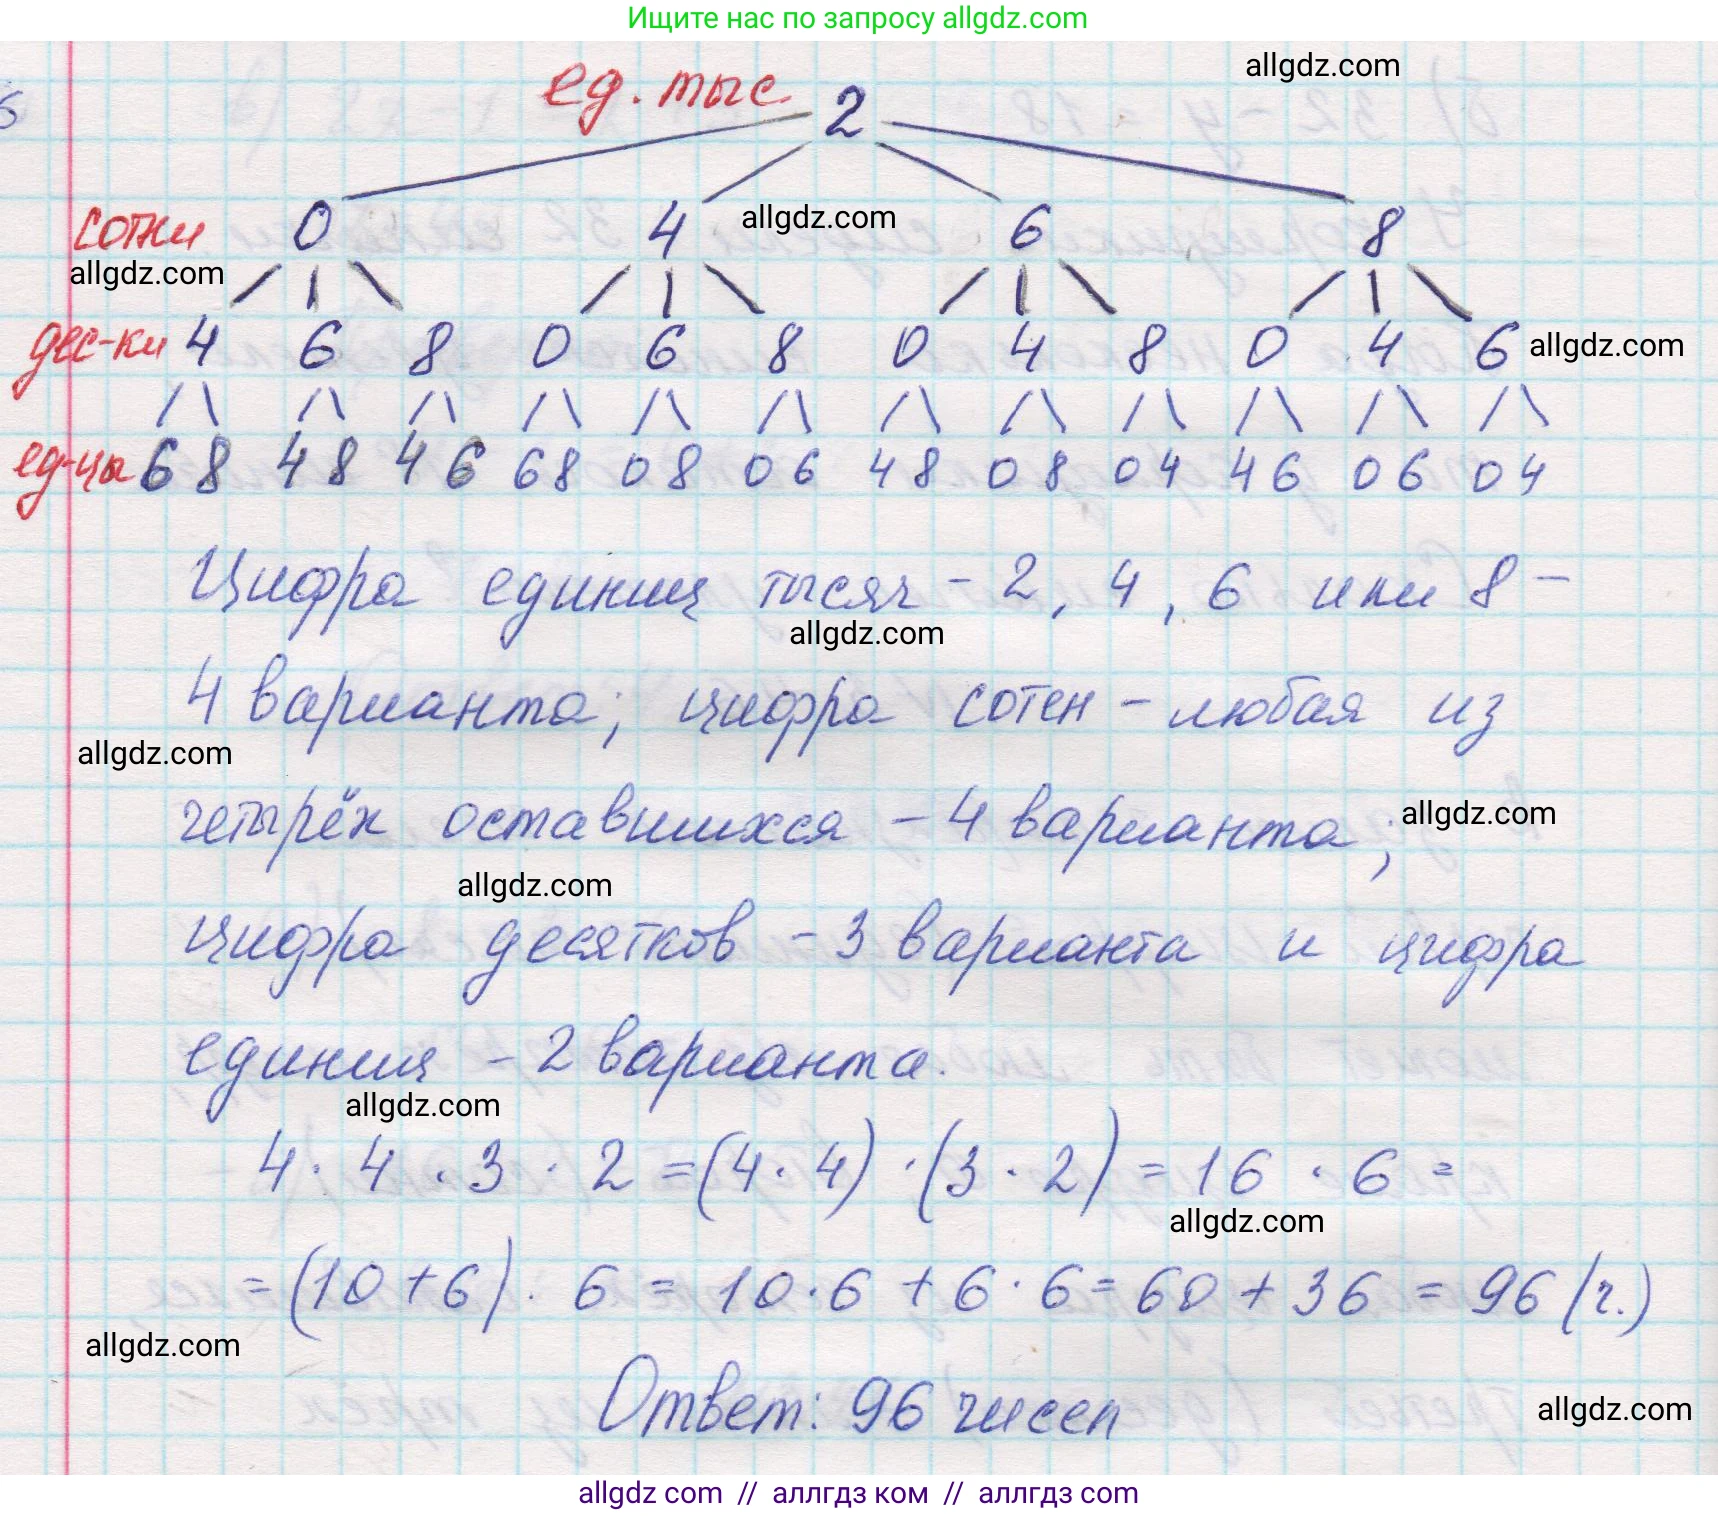 Ищите нас по запросу allgdz.com
allgdz.com
ед. тыс. 2
сотни 0 4 6 8
allgdz.com
allgdz.com
дес-ки 4 6 8 0 6 8 0 4 8 0 4 6
allgdz.com
ед-цы 6 8 4 8 4 6 6 8 0 8 0 6 4 8 0 8 0 4 4 6 0 6 0 4
Цифра единиц тысяч - 2, 4, 6 или 8 -
allgdz.com
4 варианта; цифра сотен - любая из
allgdz.com
четырёх оставшихся - 4 варианта;
allgdz.com
allgdz.com
цифра десятков - 3 варианта и цифра
единиц - 2 варианта.
allgdz.com
4 · 4 · 3 · 2 = (4 · 4) · (3 · 2) = 16 · 6 =
allgdz.com
= (10 + 6) · 6 = 10 · 6 + 6 · 6 = 60 + 36 = 96 (ч.)
allgdz.com
Ответ: 96 чисел
allgdz.com
allgdz com // аллгдз ком // аллгдз com